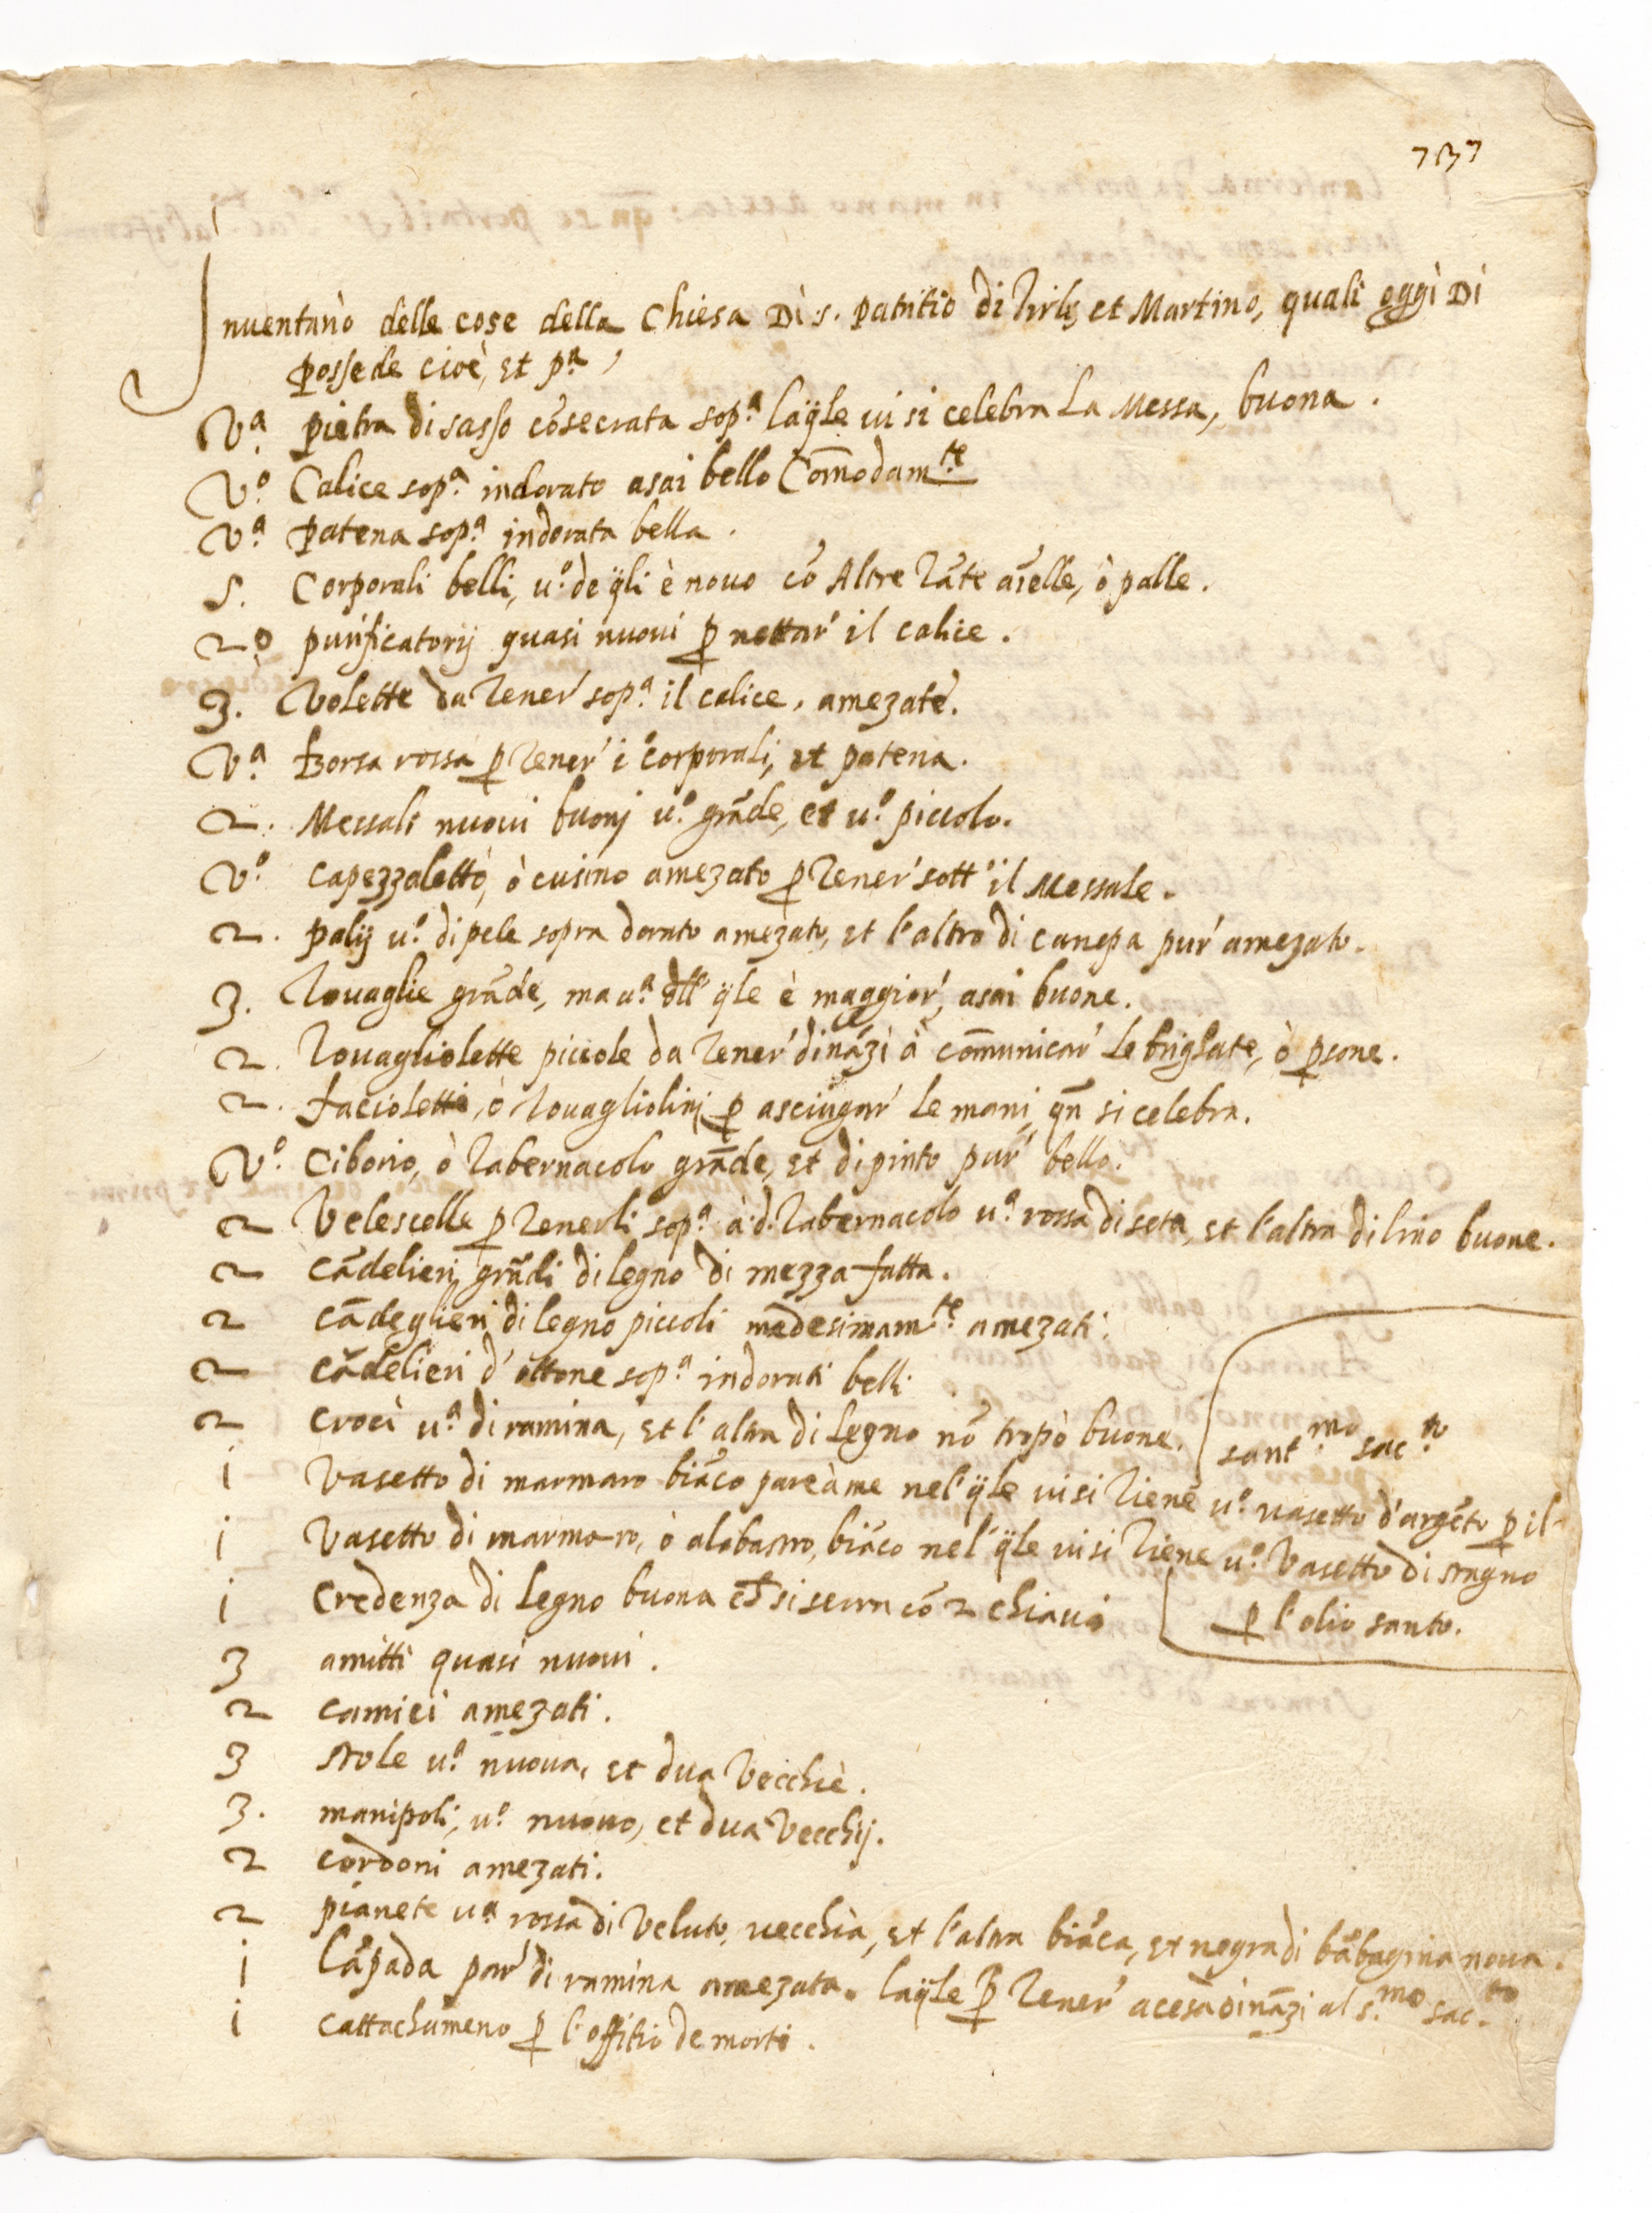 Inuentario delle cose della Chiesa Dì s. Patritio di et Martino, quali oggì Dì
possede cioè, et pª,
Vª pietra di sasso cõsecrata sopª laq̃le ui si celebra La Messa, buona.
Vº Calice sopª indorato asai bello Com̃odamte
Vª Patena sopª indorata bella.
5. Corporali belli, uº de q̃li è nouo cõ Altre tãte aielle, ò palle.
2º purificatorij quasi nuoui ꝑ nettar' il calice.
3. Volette da tener' sopª il calice, amezate.
Vª Borsa rossa ꝑ tener' i corporali, et patena.
2. Messali nuoui buonj uº grãde, et uº piccolo.
Vº capezzaletto, ò cusino amezato ꝑ tener' sott' il Messale.
2. palij uº di pele sopra dorato amezato, et l'altro di canepa pur' amezato.
3. Touaglie grãde, ma uª dll' q̃le è maggior', asai buone.
2. Touagliolette piccole da tener' dinãzi à com̃unicar' le brigate, ò ꝑsone.
2. facioletti, ò touagliolini ꝑ asciugar' le mani, qñ si celebra.
Vº Ciborio, ò tabernacolo grãde, et dipinto pur' bello.
2 Velescelle ꝑ tenerli sopª à d. tabernacolo uª rossa di seta, et l'altra di lino buone.
2 cãdelieri grãdi di legno di mezza fatta.
2 cãdeglieri di legno piccoli medesimamte amezati.
2 cãdelieri d'ottone sopª indorati belli
2 croci uª di ramina, et l'altra di legno nõ tropò buone.
santmo sacto
i Vasetto di marmaro biãco pare à me nel' q̃le ui si tiene uº uasetto d'argẽto ꝑ il
i Vasetto di marmaro, ò alabastro, biãco nel' q̃le ui si tiene uº Vasetto di stagno
ꝑ l'olio santo.
i Credenza di legno buona et si serra cõ 2 chiaui
3 amitti quasi nuoui.
2 camici amezati.
3 stole uª nuoua, et dua Vecchie.
3. manipoli, uº nuouo, et dua Vecchij.
2 cordoni amezati.
2 pianete uª rossa di Veluto, uecchia, et l'altra biãca, et negra di bãbagina noua.
i Lãpada par' di ramina amezata. laq̃le ꝑ tener' acesa dinãzi al s.mo sac.to
i cattachumeno ꝑ l'offitio de morti.